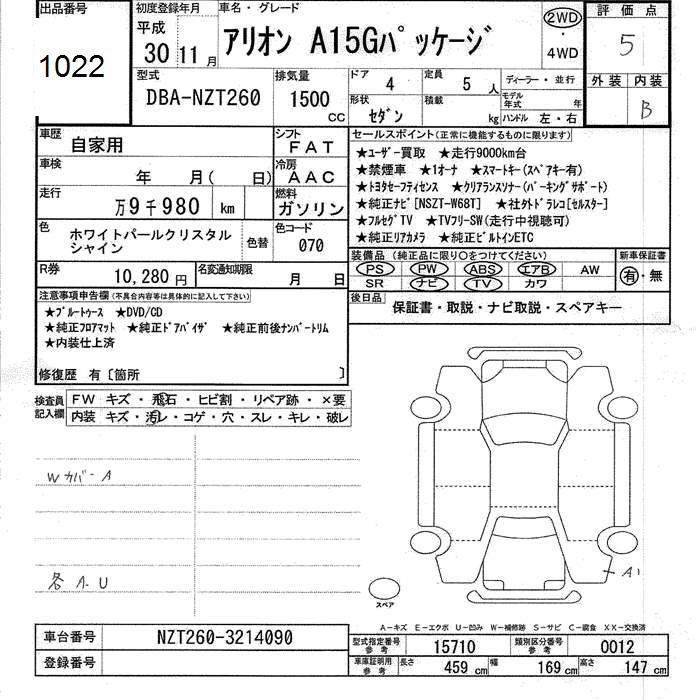 出品番号
1022
初度登録年月
平成
30 11 月
車名・グレード
アリオン A15Gパッケージ
2WD
・
4WD
評価点
5
外装 内装
B
型式
DBA-NZT260
排気量
1500
CC
ドア 4
定員 5 人
ディーラー・並行
形状 セダン
積載 kg
モデル年式 年
ハンドル 左・右
車歴 自家用
シフト FAT
車検 年 月( 日)
冷房 AAC
走行 万9千980 km
燃料 ガソリン
色 ホワイトパールクリスタルシャイン
色替
色コード 070
R券 10,280円
名変通知期限 月 日
セールスポイント(正常に機能するものに限ります)
★ユーザー買取 ★走行9000km台
★禁煙車 ★1オーナ ★スマートキー(スペアキー有)
★トヨタセーフティセンス ★クリアランスソナー(パーキングサポート)
★純正ナビ[NSZT-W68T] ★社外ドラレコ[セルスター]
★フルセグTV ★TVフリーSW(走行中視聴可)
★純正リアカメラ ★純正ビルトインETC
装備品(純正品に限り○をつけてください)
新車保証書
PS PW ABS エアB AW
SR ナビ TV カワ
有・無
後日品 保証書・取説・ナビ取説・スペアキー
注意事項申告欄(不具合内容等は具体的に記入して下さい)
★ブルートゥース ★DVD/CD
★純正フロアマット ★純正ドアバイザ ★純正前後ナンバートリム
★内装仕上済
修復歴 有[箇所 ]
検査員記入欄
FW キズ・飛石・ヒビ割・リペア跡・×要
内装 キズ・汚レ・コゲ・穴・スレ・キレ・破レ
Wカバー A
各 A.U
A1
スペア
A－キズ E－エクボ U－凹み W－補修跡 S－サビ C－腐食 XX－交換済
車台番号 NZT260-3214090
登録番号
型式指定番号 参考 15710
類別区分番号 参考 0012
車庫証明用 参考 長さ 459 cm 幅 169 cm 高さ 147 cm